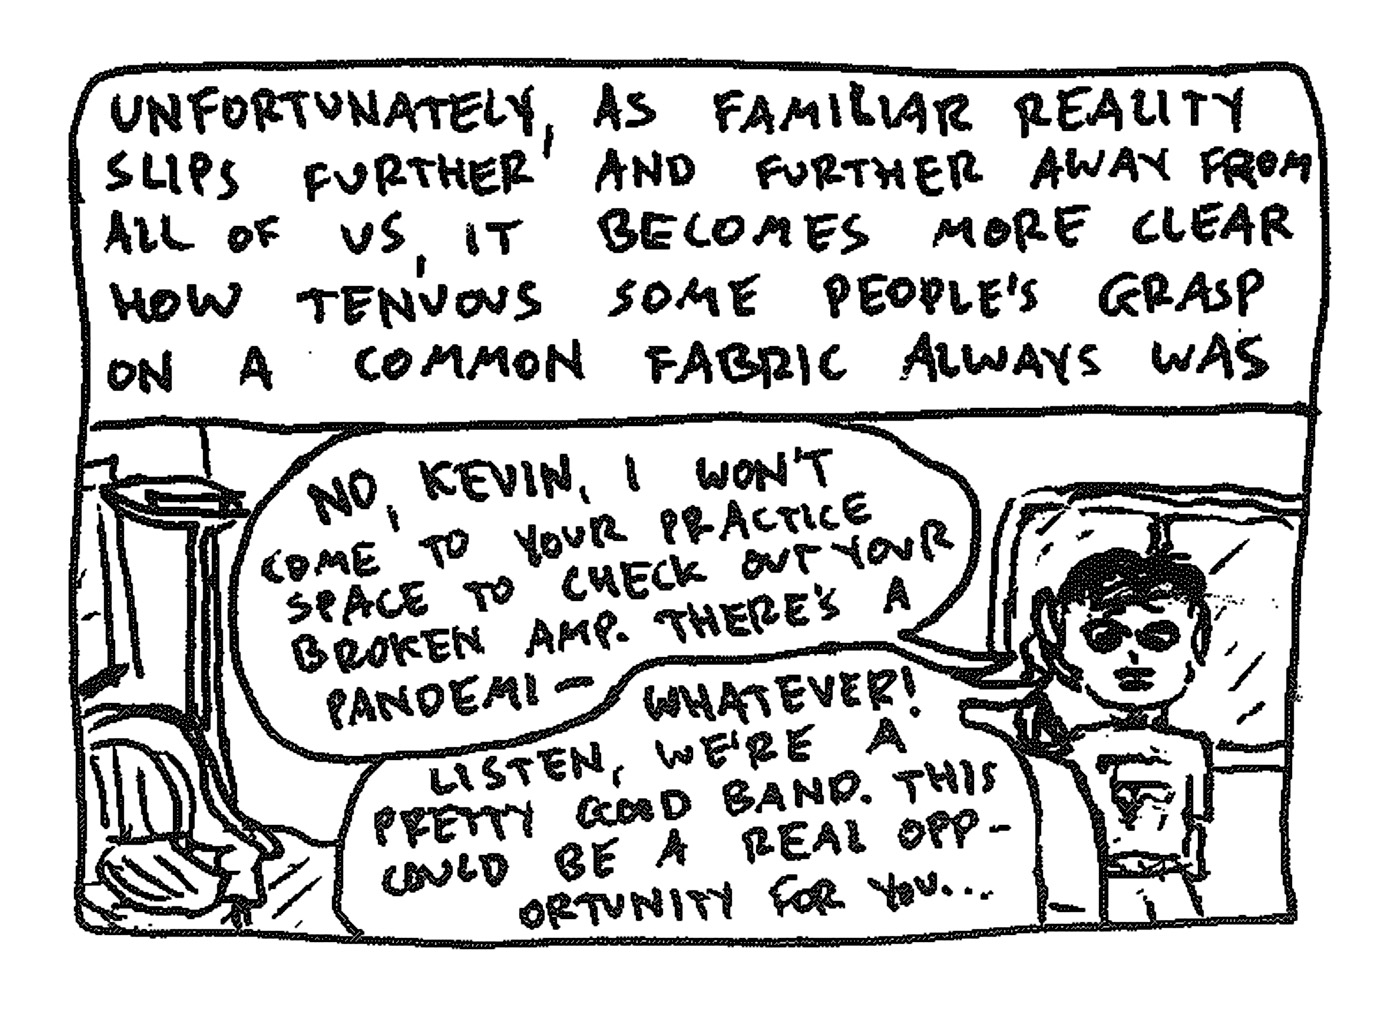 UNFORTUNATELY, AS FAMILIAR REALITY
SLIPS FURTHER AND FURTHER AWAY FROM
ALL OF US, IT BECOMES MORE CLEAR
HOW TENUOUS SOME PEOPLE'S GRASP
ON A COMMON FABRIC ALWAYS WAS
NO, KEVIN, I WON'T
COME TO YOUR PRACTICE
SPACE TO CHECK OUT YOUR
BROKEN AMP. THERE'S A
PANDEMI—
WHATEVER!
LISTEN, WE'RE A
PRETTY GOOD BAND. THIS
COULD BE A REAL OPP-
ORTUNITY FOR YOU...